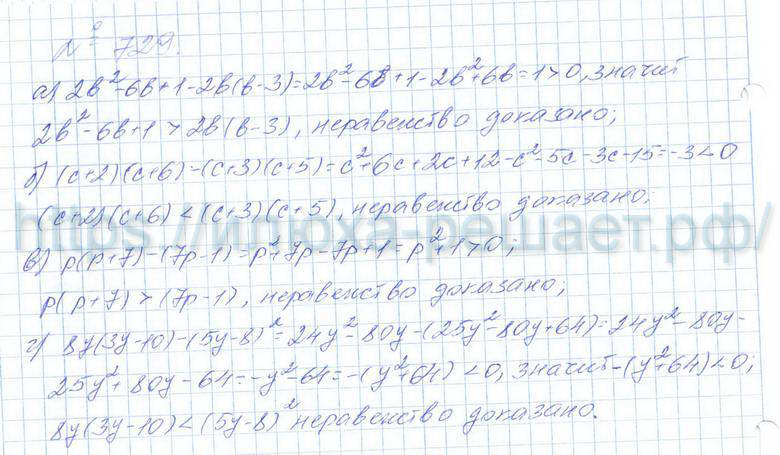 № 729.
а) 2в²-6в+1-2в(в-3)=2в²-6в+1-2в²+6в=1>0, значит
2в²-6в+1>2в(в-3), неравенство доказано;
б) (с+2)(с+6)-(с+3)(с+5)=с²+6с+2с+12-с²-5с-3с-15=-3<0
(с+2)(с+6)<(с+3)(с+5), неравенство доказано;
https://илюха-решает.рф/
в) р(р+7)-(7р-1)=р²+7р-7р+1=р²+1>0;
р(р+7)>(7р-1), неравенство доказано;
г) 8у(3у-10)-(5у-8)²=24у²-80у-(25у²-80у+64)=24у²-80у-
25у²+80у-64=-у²-64=-(у²+64)<0, значит-(у²+64)<0;
8у(3у-10)<(5у-8)² неравенство доказано.